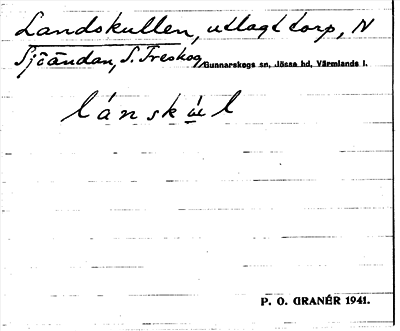 Landskullen, utlagt torp, N
Sjöändan, S. Treskog, Gunnarskogs sn, Jösse hd, Värmlands l.
lánsku̲l
P. O. GRANÉR 1941.